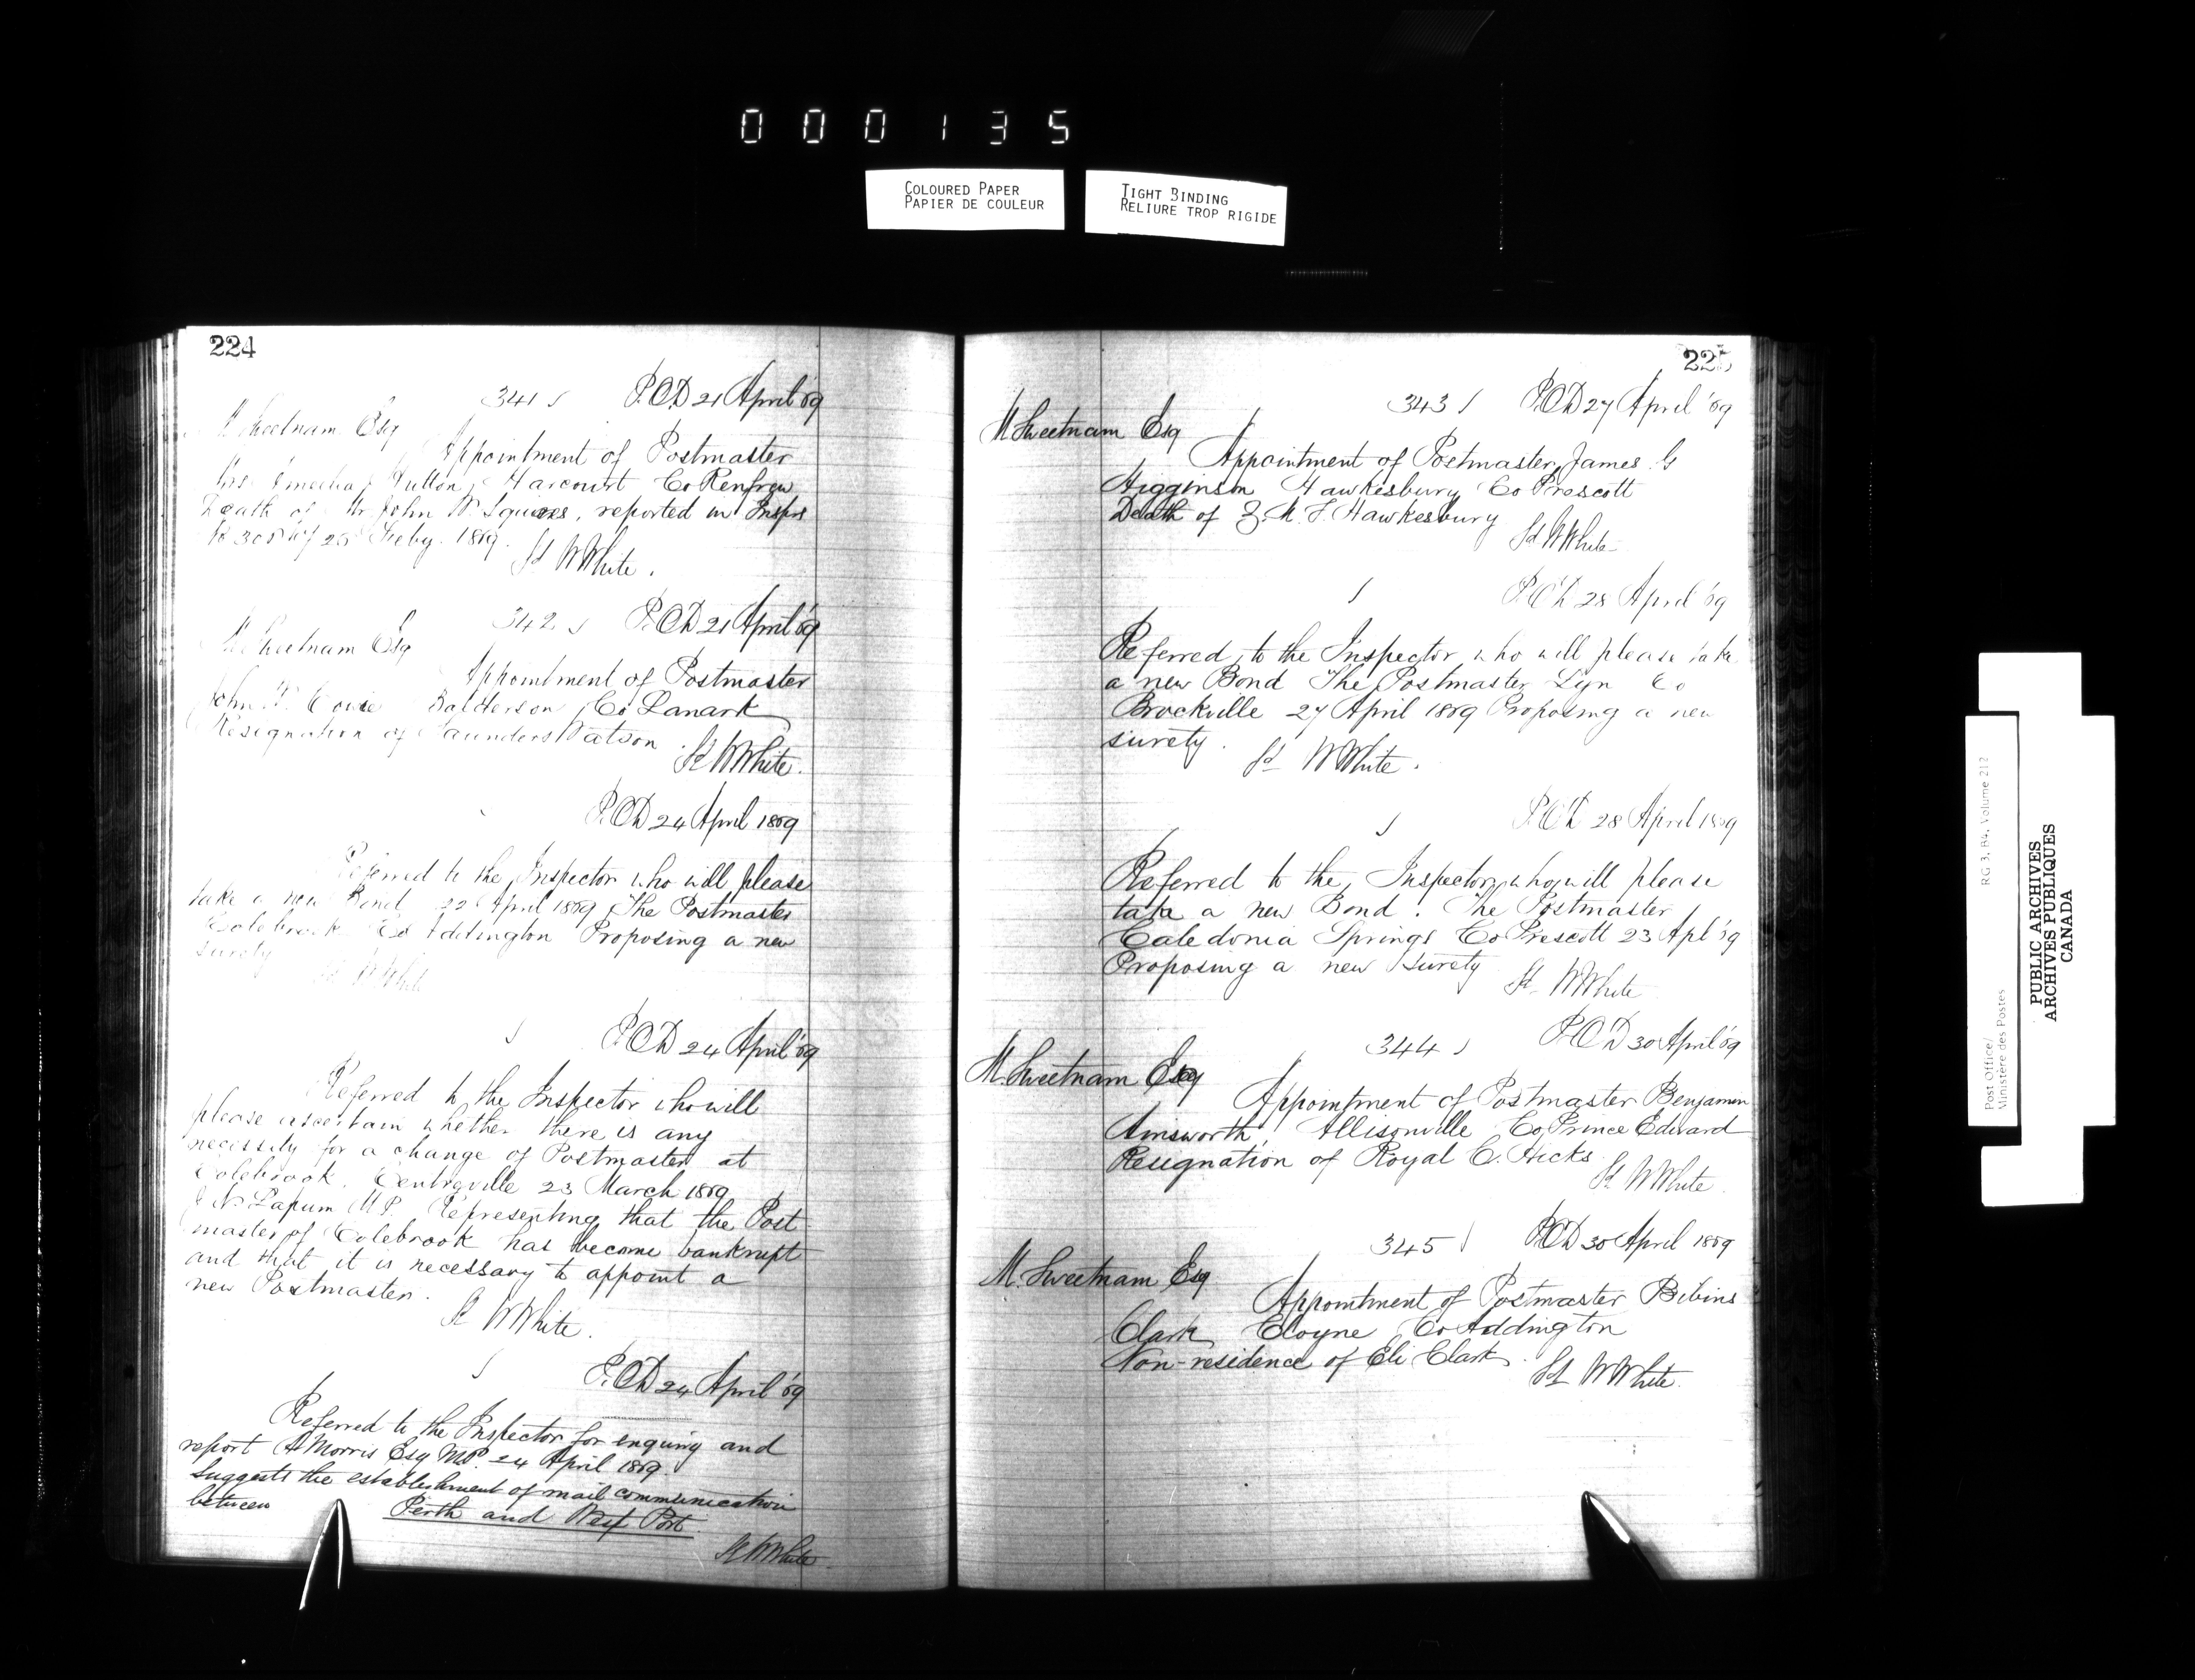 000135
COLOURED PAPER
PAPIER DE COULEUR
TIGHT BINDING
RELIURE TROP RIGIDE
224
341 P.O.D 21 April '69
M Sweetnam Esq
Appointment of Postmaster
Mrs Hutton, Harcourt Co Renfrew
Death of Mr John Squires, reported in Insprs
of 25 Feby. 1869.
Sd WWhite.
342 P.O.D 21 April '69
M Sweetnam Esq
Appointment of Postmaster
John Balderson Co Lanark
Resignation of Saunders Watson.
Sd WWhite.
P.O.D 24 April 1869
Referred to the Inspector who will please
take a new Bond 22 April 1869 The Postmaster
Colebrook Co Addington Proposing a new
surety
Sd WWhite
P.O.D 24 April '69
Referred to the Inspector who will
please ascertain whether there is any
necessity for a change of Postmaster at
Colebrook. Centreville 23 March 1869
J N. Lapum M.P. Representing that the Post
master of Colebrook has become bankrupt
and that it is necessary to appoint a
new Postmaster.
Sd WWhite.
P.O.D 24 April '69
Referred to the Inspector for enquiry and
report A Morris Esq M.P. 24 April 1869
Suggests the establishment of mail communication
between Perth and West Port
Sd WWhite.
225
343 P.O.D 27 April '69
M Sweetnam Esq
Appointment of Postmaster, James G
Higginson Hawkesbury Co Prescott
Death of Hawkesbury
Sd WWhite
P.O.D 28 April '69
Referred to the Inspector who will please take
a new Bond The Postmaster Lyn Co
Brockville 27 April 1869 Proposing a new
surety.
Sd WWhite.
P.O.D 28 April 1869
Referred to the Inspector who will please
take a new Bond. The Postmaster
Caledonia Springs Co Prescott 23 Apl '69
Proposing a new Surety
Sd WWhite
344 P.O.D 30 April '69
M. Sweetnam Esq
Appointment of Postmaster Benjamin
Ainsworth, Allisonville Co Prince Edward
Resignation of Royal C. Hicks
Sd WWhite.
345 P.O.D 30 April 1869
M. Sweetnam Esq
Appointment of Postmaster Bibins
Clark Cloyne Co Addington
Non-residence of Eli Clark.
Sd WWhite.
Post Office/ RG 3, B4, Volume 212
Ministère des Postes
PUBLIC ARCHIVES
ARCHIVES PUBLIQUES
CANADA